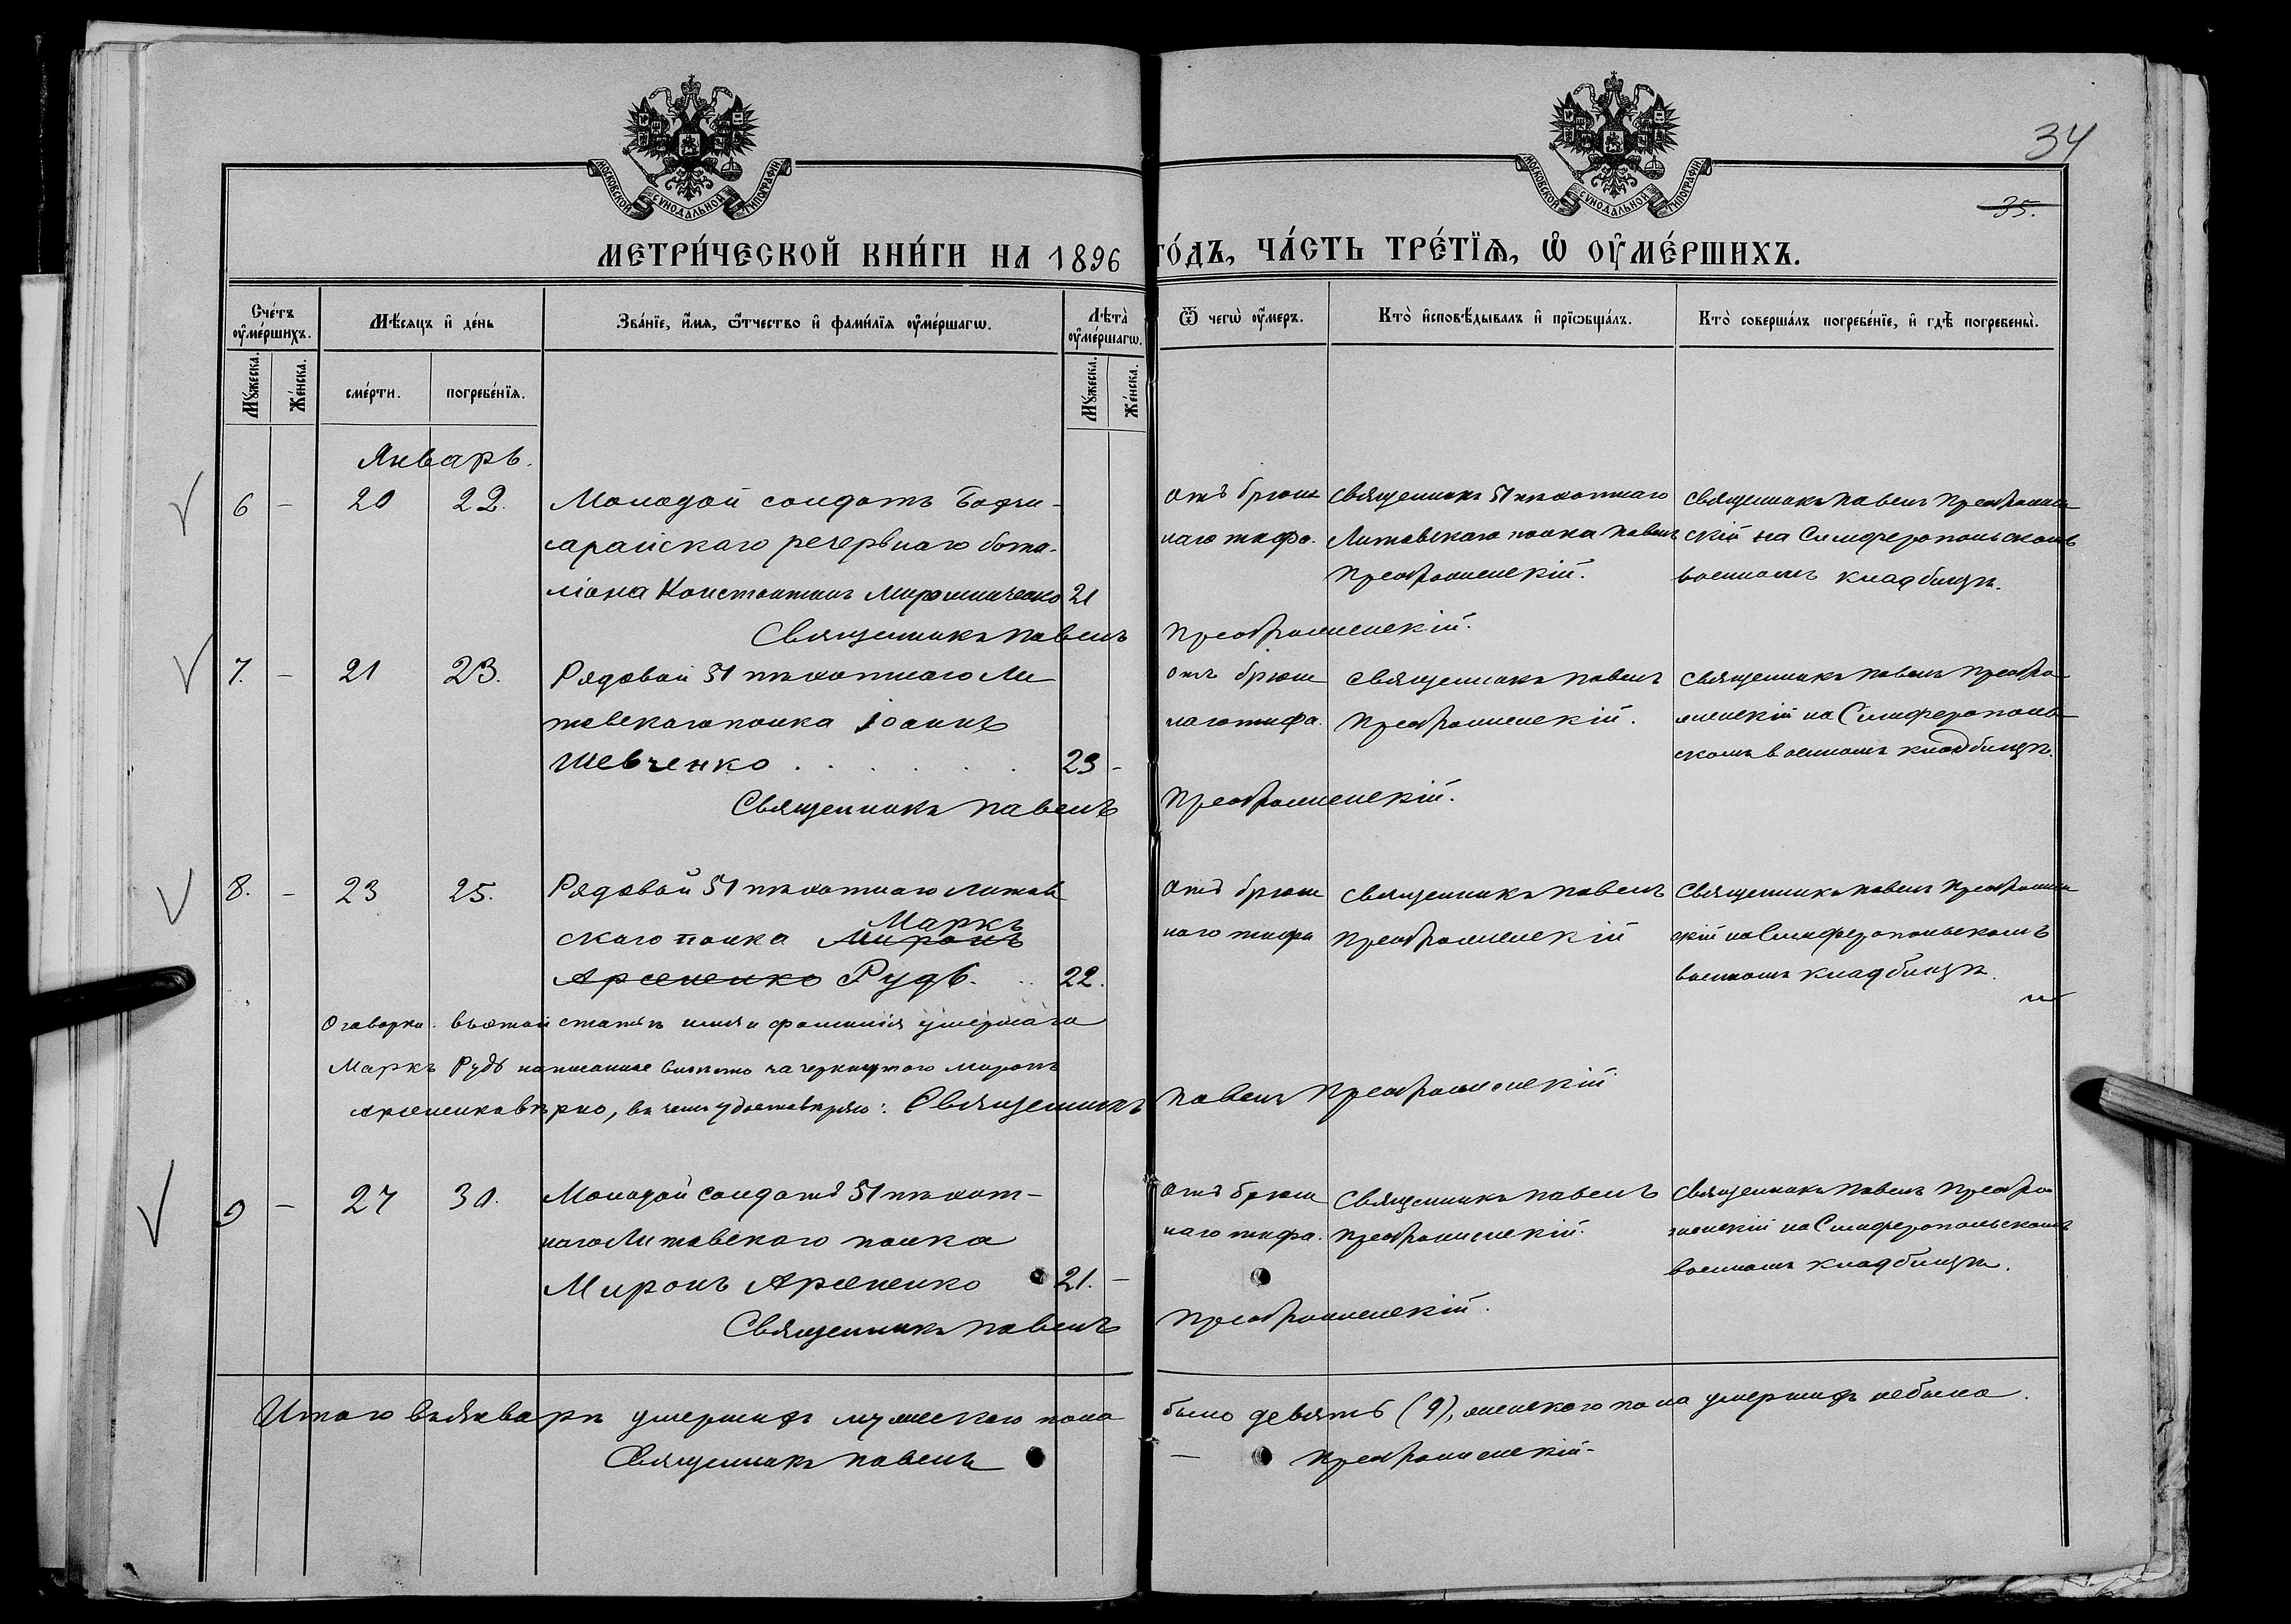 МОСКОВСКОЙ СУНОДАЛЬНОЙ ТИПОГРАФИ
МОСКОВСКОЙ СУНОДАЛЬНОЙ ТИПОГРАФИ
34
35.
МЕТРИ́ЧЕСКОЙ КНИ́ГИ НА 1896 ГО́ДЪ, ЧА́СТЬ ТРЕ́ТЇѦ, Ѡ҆ ОУ҆МЕ́РШИХЪ.
Сче́тъ оу҆ме́ршихъ.
Мꙋ́жеска.
Же́нска.
Мѣ́сяцъ и҆ де́нь
сме́рти.
погребе́нїѧ.
Зва́нїе, и҆́мя, ѻ҆́тчество и҆ фами́лїѧ оу҆ме́ршагѡ.
Лѣ́та̀ оу҆ме́ршагѡ.
Мꙋ́жеска.
Же́нска.
Ѿ чегѡ̀ оу҆́меръ.
Кто̀ и҆сповѣ́дывалъ и҆ прїѡбща́лъ.
Кто̀ соверша́лъ погребе́нїе, и҆ гдѣ̀ погребены̀.
Январь.
6 - 20 22. Молодой солдатъ Бахчи-
сарайскаго резервнаго бата-
ліона Константинъ Мирошниченко 21
отъ брюш
наго тифа.
Священникъ 51 пѣхотнаго
Литовскаго полка Павелъ
Преображенскій.
Священникъ Павелъ Преображен
скій на Симферопольскомъ
военномъ кладбищѣ.
Священникъ Павелъ Преображенскій.
7. - 21 23. Рядовой 51 пѣхотнаго Ли
товскаго полка Іоаннъ
Шевченко . . . . . . 23 -
отъ брюш
наго тифа.
Священникъ Павелъ
Преображенскій.
Священникъ Павелъ Преобра
женскій на Симферополь
скомъ военномъ кладбищѣ.
Священникъ Павелъ Преображенскій.
8. - 23 25. Рядовой 51 пѣхотнаго Литов
Маркъ
скаго полка Миронъ
Арсененко Рудь. . . 22.
отъ брюш
наго тифа
Священникъ Павелъ
Преображенскій
Священникъ Павелъ Преображен
скій на Симферопольскомъ
военномъ кладбищѣ.
Оговорка: въ этой статьѣ имя и фамилія умершаго
Маркъ Рудь написанные вмѣсто зачеркнутаго Миронъ
Арсененко вѣрно, въ чемъ удостовѣряю: Священникъ Павелъ Преображенскій
9 - 27 30. Молодой солдатъ 51 пѣхот-
наго Литовскаго полка
Миронъ Арсененко 21. -
отъ брюш
наго тифа.
Священникъ Павелъ
Преображенскій.
Священникъ Павелъ Преобра
женскій на Симферопольскомъ
военномъ кладбищѣ.
Священникъ Павелъ Преображенскій.
Итого въ Январѣ умершихъ мужескаго пола было девять (9), женскаго пола умершихъ небыло.
Священникъ Павелъ - Преображенскій-